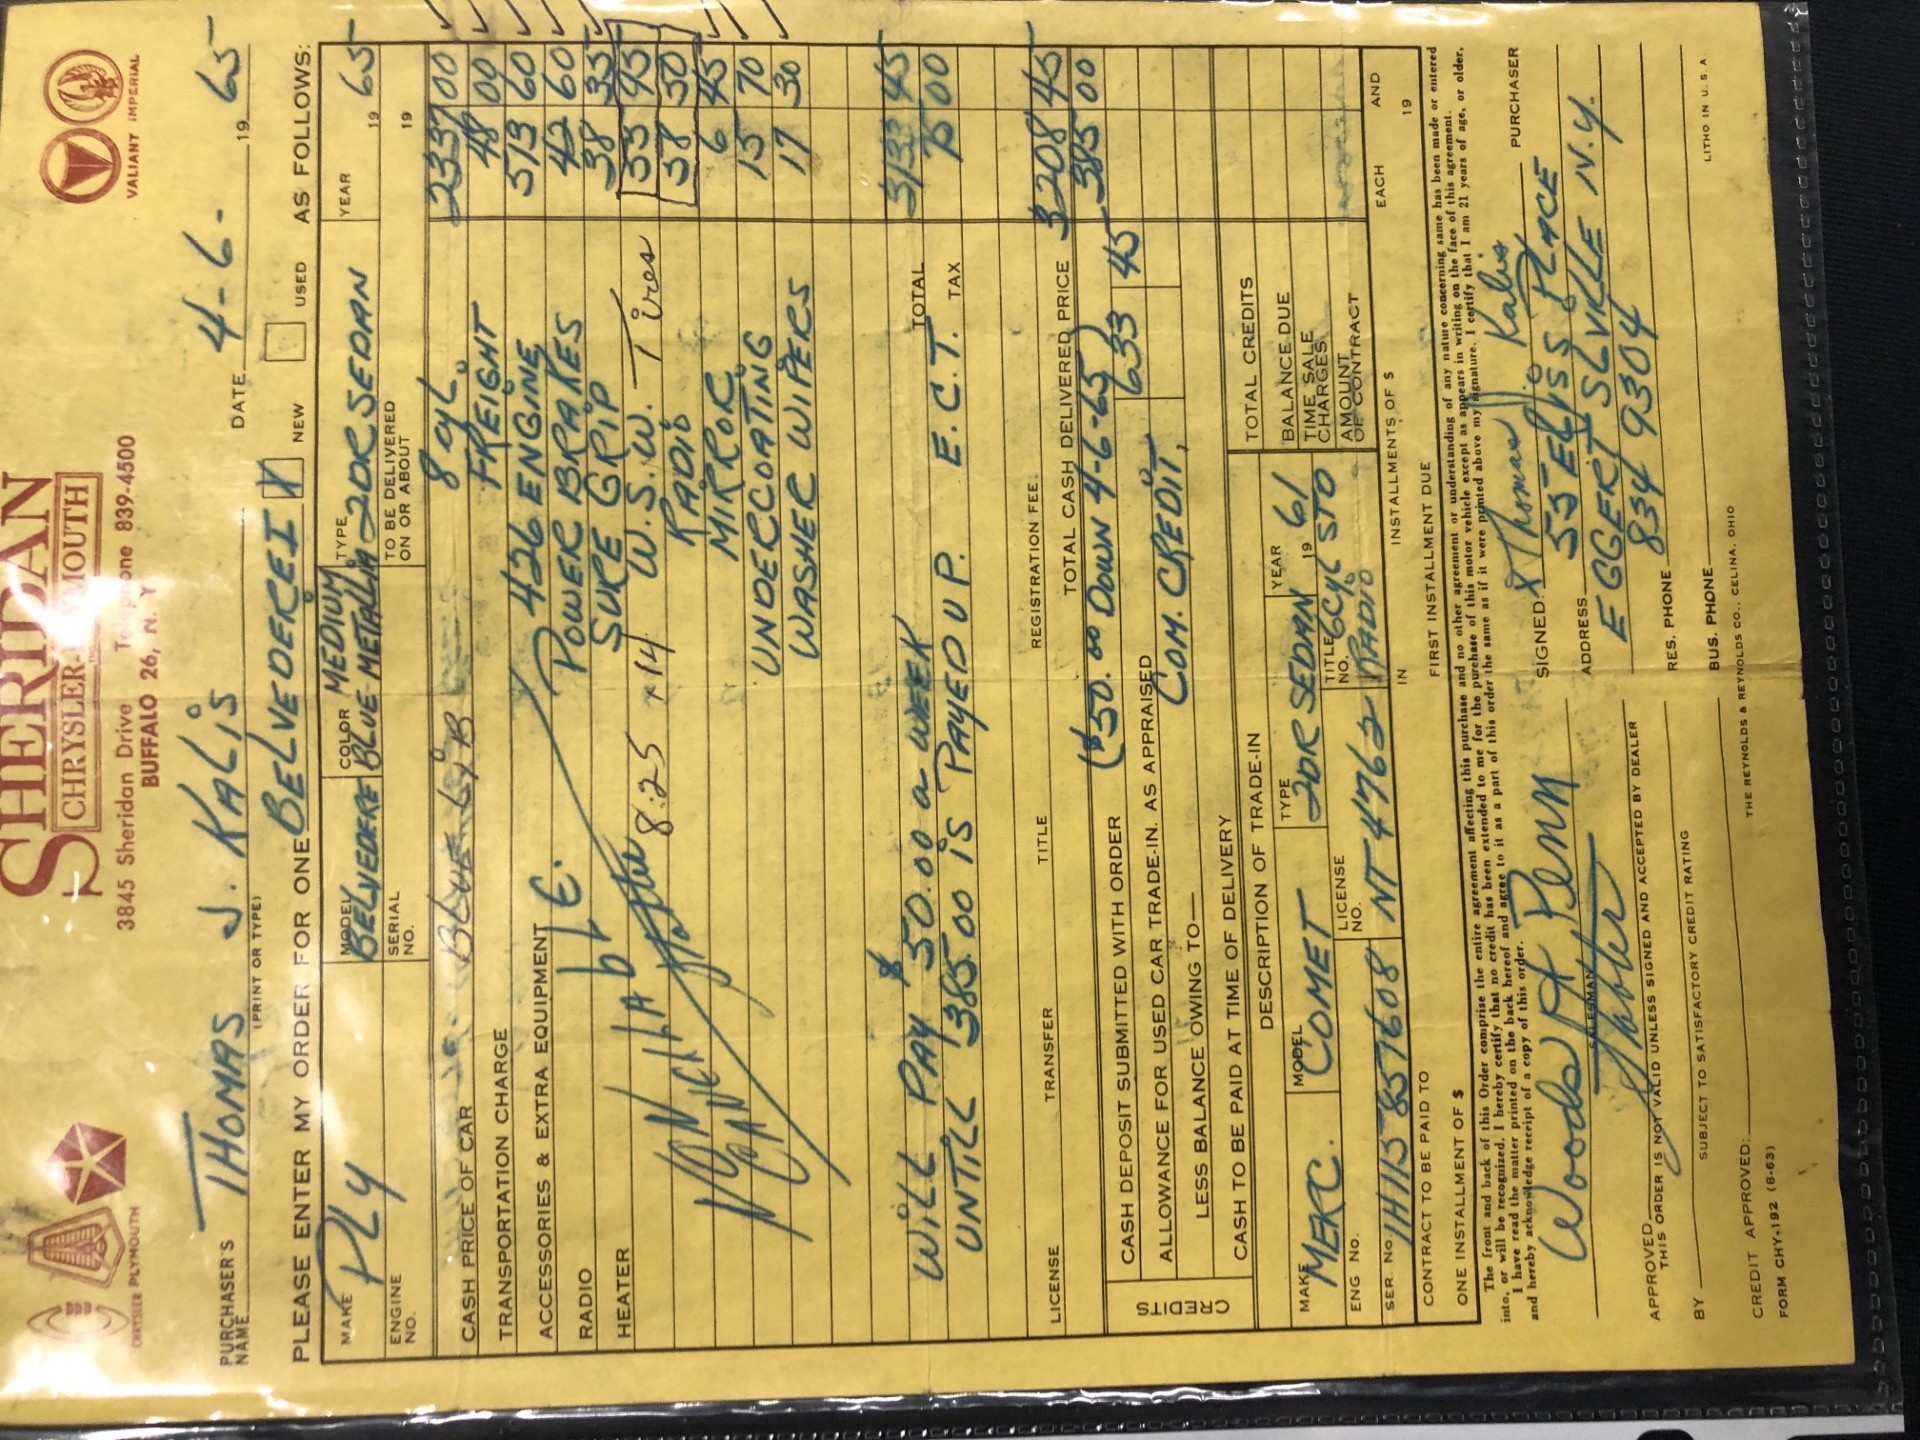 SHERIDAN
CHRYSLER-PLYMOUTH
3845 Sheridan Drive Telephone 839-4500
BUFFALO 26, N. Y.
CHRYSLER PLYMOUTH
VALIANT IMPERIAL
PURCHASER'S NAME THOMAS J. KALIS DATE 4-6- 19 65
(PRINT OR TYPE)
PLEASE ENTER MY ORDER FOR ONE BELVEDERE I X NEW USED AS FOLLOWS:
MAKE PLY MODEL BELVEDERE COLOR MEDIUM BLUE METALLIC TYPE 2DR SEDAN YEAR 19 65
ENGINE NO. SERIAL NO. TO BE DELIVERED ON OR ABOUT 19
CASH PRICE OF CAR BLUE 8 cyl. 2337 00
TRANSPORTATION CHARGE FREIGHT 48 00
ACCESSORIES & EXTRA EQUIPMENT 426 ENGINE 513 60
RADIO POWER BRAKES 42 60
HEATER SURE GRIP 38 35
8:25 x 14 W.S.W. Tires 53 95
RADIO 58 50
MIRROR 6 45
UNDERCOATING 15 70
WASHER WIPERS 17 30
TOTAL 3133 45
WILL PAY $50.00 a WEEK
UNTILL 385.00 IS PAYED UP. E.C.T. TAX 75 00
LICENSE TRANSFER TITLE REGISTRATION FEE
TOTAL CASH DELIVERED PRICE 3208 45
CREDITS
CASH DEPOSIT SUBMITTED WITH ORDER ($50.00 DOWN 4-6-65) 385 00
ALLOWANCE FOR USED CAR TRADE-IN, AS APPRAISED 633 45
LESS BALANCE OWING TO COM. CREDIT.
CASH TO BE PAID AT TIME OF DELIVERY
DESCRIPTION OF TRADE-IN
TOTAL CREDITS
BALANCE DUE
TIME SALE CHARGES
AMOUNT OF CONTRACT
MAKE MERC. MODEL COMET TYPE 2DR SEDAN YEAR 19 61
ENG NO. LICENSE NO. TITLE NO. 6CYL STD
SER. NO. 1H11S 857608 NT 4762 RADIO
CONTRACT TO BE PAID TO IN INSTALLMENTS OF $ EACH AND
ONE INSTALLMENT OF $ FIRST INSTALLMENT DUE 19
The front and back of this Order comprise the entire agreement affecting this purchase and no other agreement or understanding of any nature concerning same has been made or entered
into, or will be recognized. I hereby certify that no credit has been extended to me for the purchase of this motor vehicle except as appears in writing on the face of this agreement.
I have read the matter printed on the back hereof and agree to it as a part of this order the same as if it were printed above my signature. I certify that I am 21 years of age, or older,
and hereby acknowledge receipt of a copy of this order.
Woods & Penn SALESMAN
SIGNED X Thomas J. Kalis PURCHASER
ADDRESS 55 ELLIS PLACE
EGGERTSLVILLE N.Y.
APPROVED
THIS ORDER IS NOT VALID UNLESS SIGNED AND ACCEPTED BY DEALER
RES. PHONE 834 9304
BY
SUBJECT TO SATISFACTORY CREDIT RATING
BUS. PHONE
CREDIT APPROVED:
FORM CHY-192 (8-63)
THE REYNOLDS & REYNOLDS CO., CELINA, OHIO
LITHO IN U. S. A.